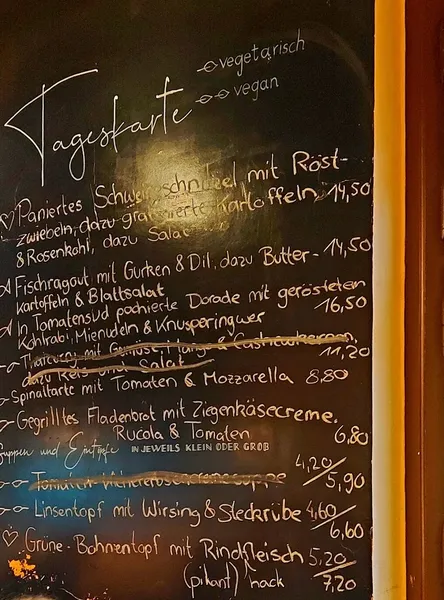 vegetarisch
vegan
Tageskarte
Paniertes Schweineschnitzel mit Röst-
zwiebeln, dazu gratinierte Kartoffeln 14,50
& Rosenkohl, dazu Salat
Fischragout mit Gurken & Dil, dazu Butter- 14,50
kartoffeln & Blattsalat
In Tomatensud pochierte Dorade mit gerösteten
Kohlrabi, Mienudeln & Knusperingwer 16,50
Thaicurry mit Gemüse, Mango & Cashewkernen,
dazu Reis und Salat 11,20
Spinattarte mit Tomaten & Mozzarella 8,80
Gegrilltes Fladenbrot mit Ziegenkäsecreme,
Rucola & Tomaten 6,80
Suppen und Eintöpfe IN JEWEILS KLEIN ODER GROß
Tomaten-Kichererbsencremesuppe 4,20/5,90
Linsentopf mit Wirsing & Steckrübe 4,60/6,60
Grüne-Bohnentopf mit Rindfleisch 5,20/7,20
(pikant) hack